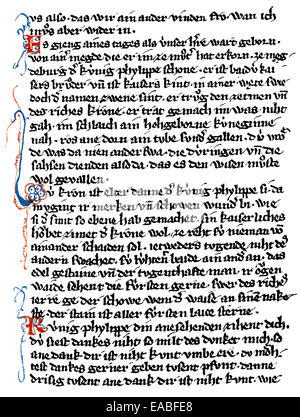 vs also. das wir ain ander vinden. frv̊ wan ich
mv̊s aber wider in.
Es gieng aines tages als vnser h're wart geborn.
von ainer megde die er im ze mv̊ter hat erkorn. ze meg
deburg d' kv́nig phylippe schone. er ist baid' kai
sers brv̊der vn̄ ist kaisers kint. in ainer wete swe
doch d' namen zwene sint. er trv̊g den zeptrum vn̄
des riches krone. er trat gemach im was niht
gah. im schlaich ain hohgeborne kv́neginne
nah. ros ane dorn ain tube sonder gallen. dv́
was da nien anderswa. die dv́ringen vn̄ die
sahsen dienden also da. das es den wisen mv̊ste
wol gevallen.
Dv́ kron ist elter danne d' kv́nig phylippe si. da
mvgint ir merken vn̄ schowen wund' bi. wie
si d' smit so ebene hab gemachet. sin kaiserliches
hobet zimet d' krone wol. ze reht sv́ nieman vō
ainander schaiden sol. ietweders tugende niht dc
ander swachet. sv́ lv́htent baide ain ander an. das
edel gestaine vn̄ der tugenthafte man. ir ovgen
waide sehent die fv́rsten gerne. swer des riches
ierre ge der schowe wem d' waise an sime nake
ste. der stain ist aller fv́rsten laite sterne.
Kv́nig phylippe din ane sehenden zihent dich.
dv́ siest dankes niht so milt des dunket mich. so
ane dank dir ist niht kvnt vmbe ere. dv moh
test dankes gerner geben tvsent pfvnt. danne
drisig tvsent ane dank dir ist niht kvnt. wie
alamy
EABFE8
www.alamy.com